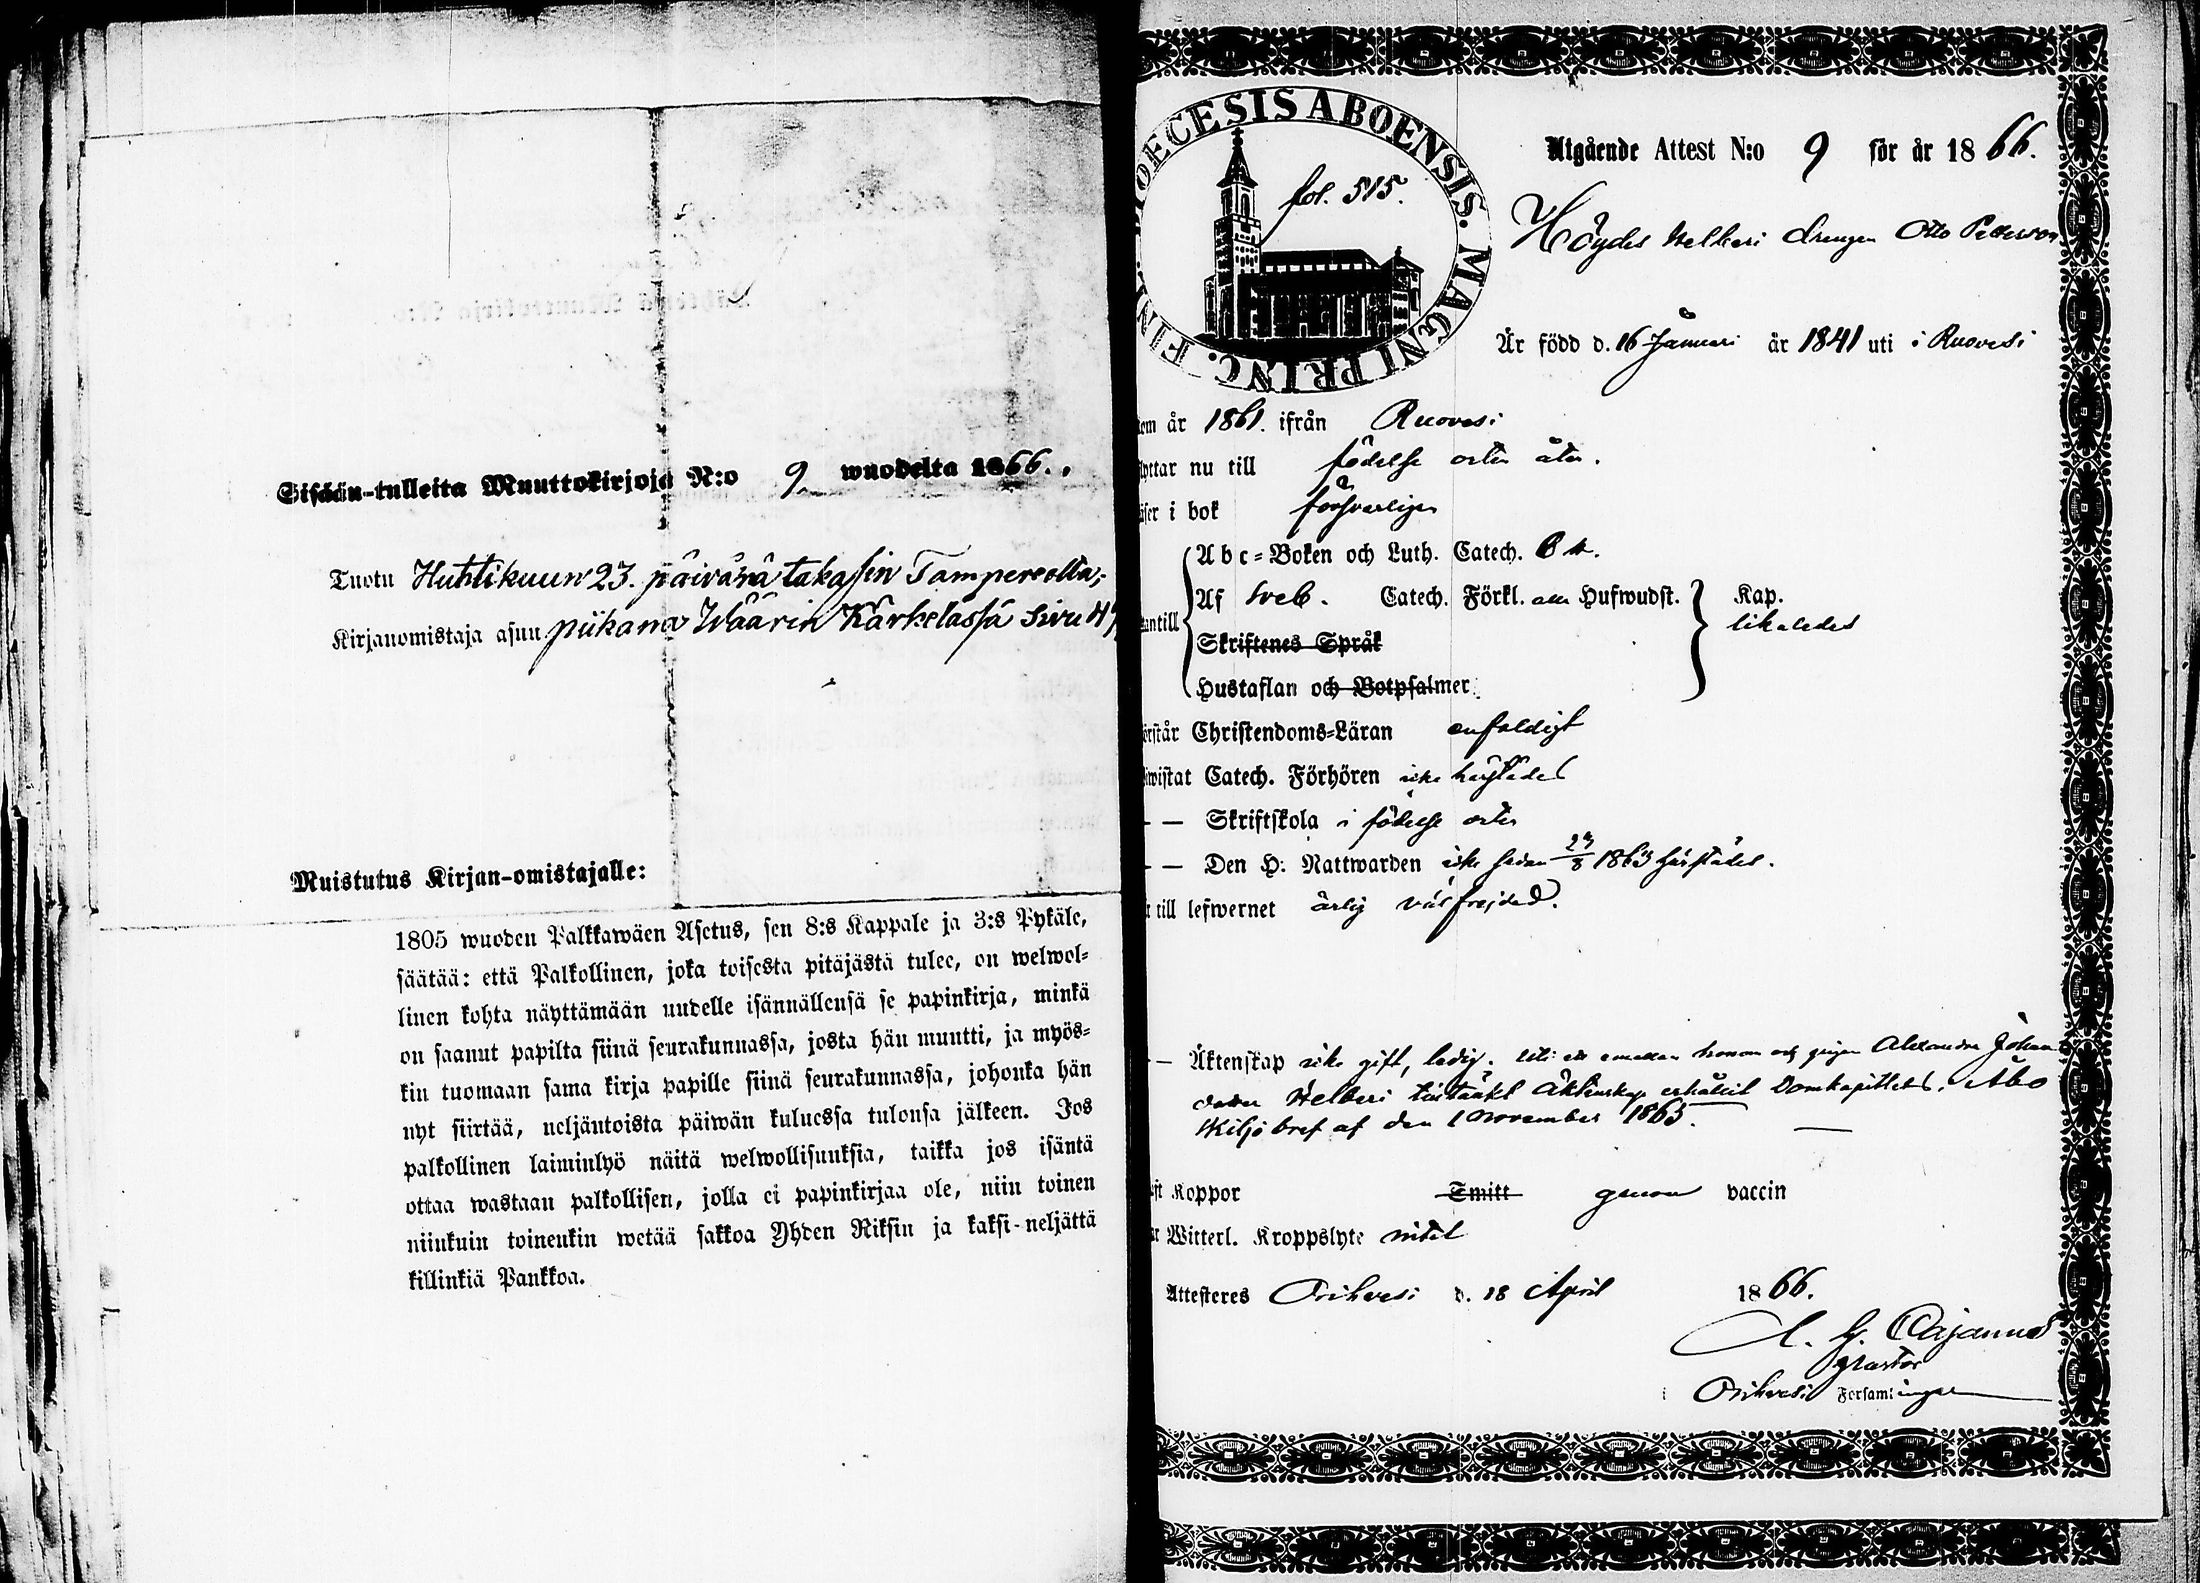 Sisään-tulleita Muuttokirjoja N:o 9. wuodelta 1866.
Tuotu Huhtikuun 23. päivänä takasin Tampereelta,
Kirjanomistaja asuu piikana Wäärin Kärkelässä sivu
Muistutus Kirjan-omistajalle:
1805 wuoden Palkkawäen Asetus, sen 8:s Kappale ja 3:s Pykäle,
säätää: että Palkollinen, joka toisesta pitäjästä tulee, on welwol-
linen kohta näyttämään uudelle isännällensä se papinkirja, minkä
on saanut papilta siinä seurakunnassa, josta hän muutti, ja myös-
kin tuomaan sama kirja papille siinä seurakunnassa, johonka hän
nyt siirtää, neljäntoista päiwän kuluessa tulonsa jälkeen. Jos
palkollinen laiminlyö näitä welwollisuuksia, taikka jos isäntä
ottaa wastaan palkollisen, jolla ei papinkirjaa ole, niin toinen
niinkuin toinenkin wetää sakkoa Yhden Riksin ja kaksi-neljättä
killinkiä Pankkoa.
DIOECESIS ABOENSIS. MAGNI PRINC. FINL.
fol. 515.
Utgående Attest N:o 9 för år 1866.
Höydes Welberi drengen Otto Petterson
Är född d. 16 Januari år 1841 uti i Ruovesi
år 1861. ifrån Ruovesi
nu till födelse orten åter.
i bok försvarligen
Abc-Boken och Luth. Catech.
Af Sveb. Catech. Förkl. alla Hufwudst. Kap.
likaledes
Skriftenes Språk
Hustaflan och Botpsalmer
Christendoms-Läran enfaldigt
Catech. Förhören icke härstädes
— Skriftskola i födelse orten
— Den H. Nattwarden icke sedan 1863 härstädes.
till lefwernet ärlig välfrejdad.
— Äktenskap icke gift, ledig. emellan honom och pigan Alexandra Johans
doter Welberi tilltänkt Äktenskap erhållit Domkapitlets i Åbo
Skiljobref af den 1 November 1865.
Koppor Smitt genom vaccin
Witterl. Kroppslyte intet
Attesteres Orihvesi d. 18 April 1866.
A. G. Cajanus
Pastor
i Orihvesi Församlingar